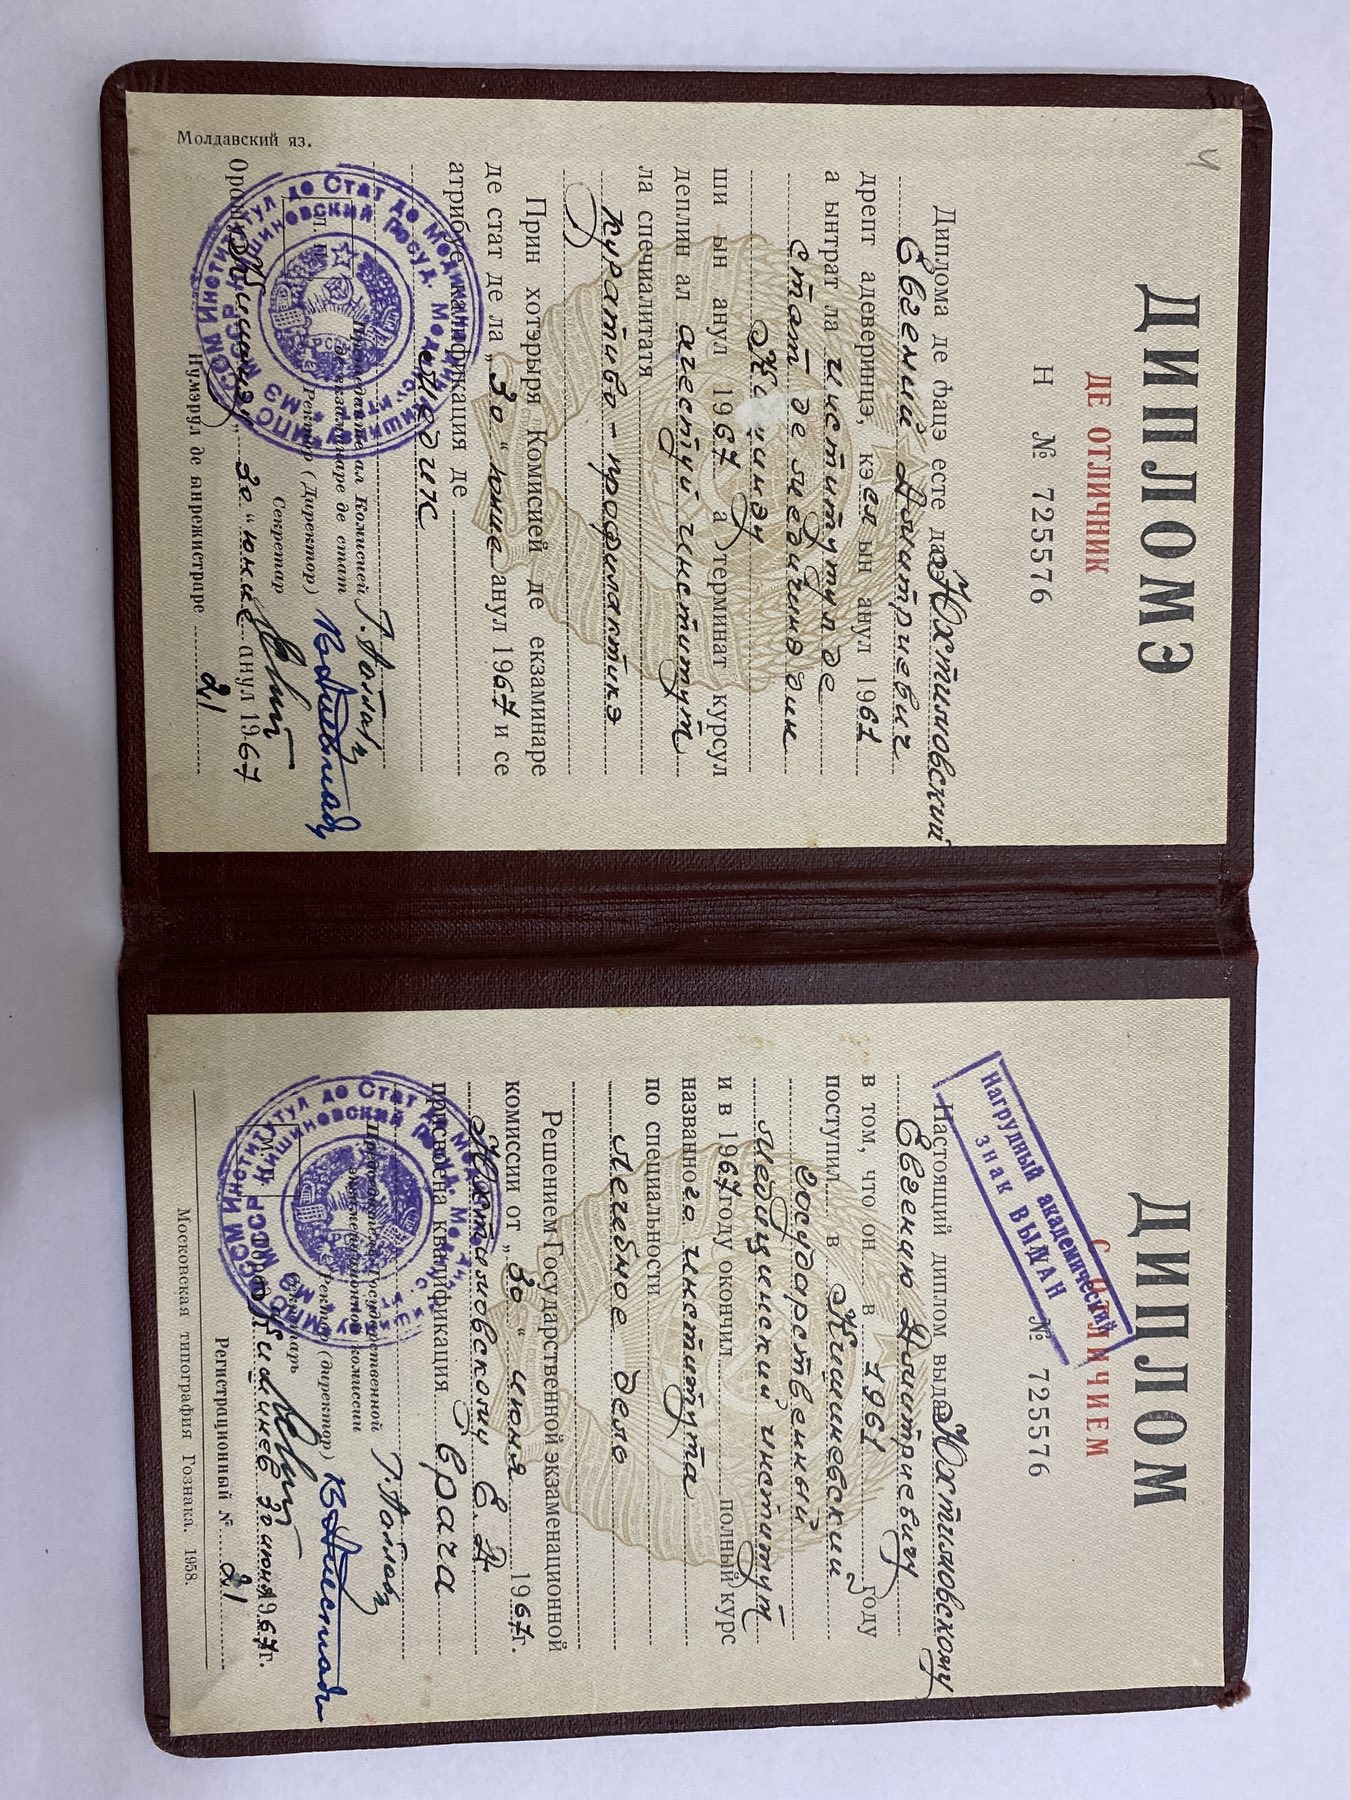 ДИПЛОМЭ
ДЕ ОТЛИЧНИК
Н № 725576
Диплома де фацэ есте датэ Юхтимовский
Евгений Дмитриевич
дрепт адеверинцэ, кэ ел ын анул 1961
а ынтрат ла институтул де
стат де медичинэ дин
Кишинэу
ши ын анул 1967 а терминат курсул
деплин ал ачестуй институт
ла спечиалитатя
куративо-профилактикэ
Прин хотэрыря Комисией де екзаминаре
де стат де ла „30“ юние анул 1967 и се
атрибуе калификация де
медик
Председателе ал Комисией
де екзаминаре де стат
Ректор (Директор)
Секретар
Орашул Кишинэу „30“ юние анул 1967
Нумэрул де ынрежистраре 21
Молдавский яз.
ДИПЛОМ
С ОТЛИЧИЕМ
№ 725576
Нагрудный академический
знак ВЫДАН
Настоящий диплом выдан Юхтимовскому
Евгению Дмитриевичу
в том, что он в 1961 году
поступил в Кишиневский
государственный
медицинский институт
и в 1967 году окончил полный курс
названного института
по специальности
лечебное дело
Решением Государственной экзаменационной
комиссии от „30“ июня 1967 г.
Юхтимовскому Е. Д.
присвоена квалификация врача
Председатель Государственной
экзаменационной комиссии
Ректор (директор)
Секретарь
М. П.
Город Кишинев 30 июня 1967 г.
Регистрационный № 21
Московская типография Гознака. 1958.